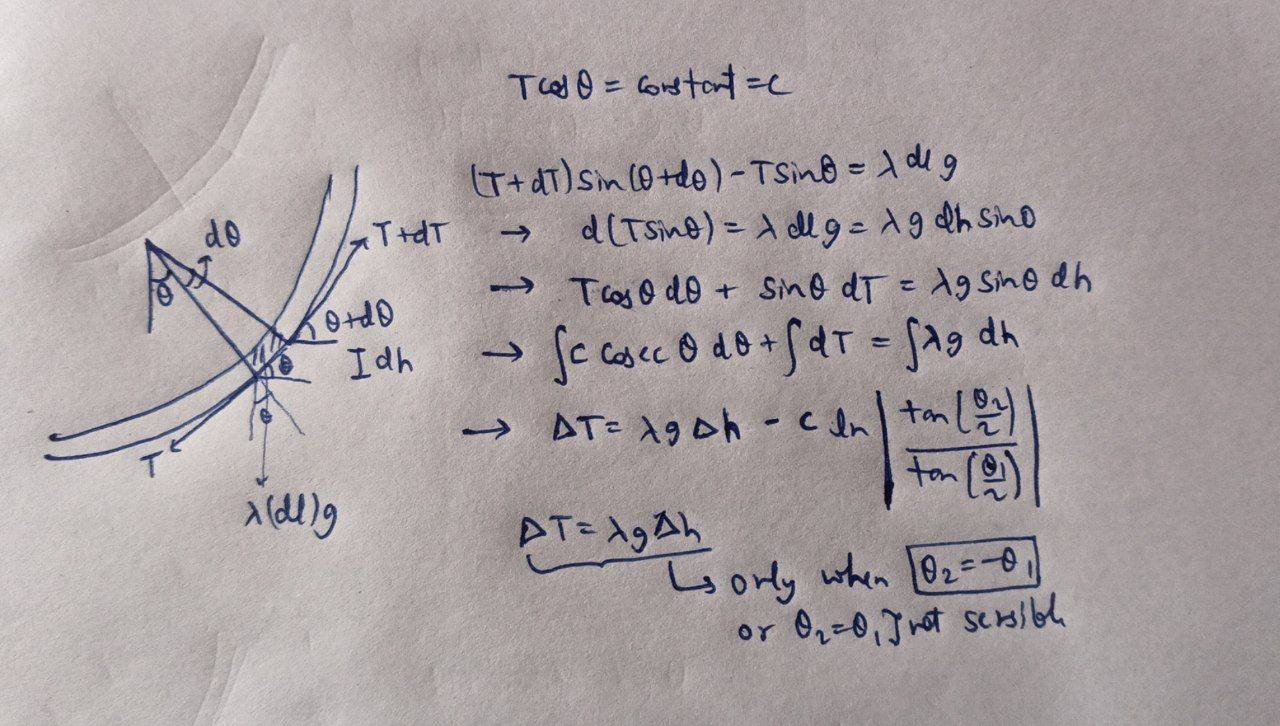 T cos θ = constant = c
(T+dT) sin(θ+dθ) - T sin θ = λ dl g
→ d(T sin θ) = λ dl g = λ g dh sin θ
→ T cos θ dθ + sin θ dT = λ g sin θ dh
→ ∫c cosec θ dθ + ∫dT = ∫λg dh
→ ΔT = λ g Δh - c ln | tan(θ₂/2) / tan(θ₁/2) |
ΔT = λg Δh
↳ only when θ₂ = -θ₁
or θ₂ = θ₁ } not sensible
dθ
θ
T+dT
θ+dθ
I dh
θ
θ
T
λ(dl)g